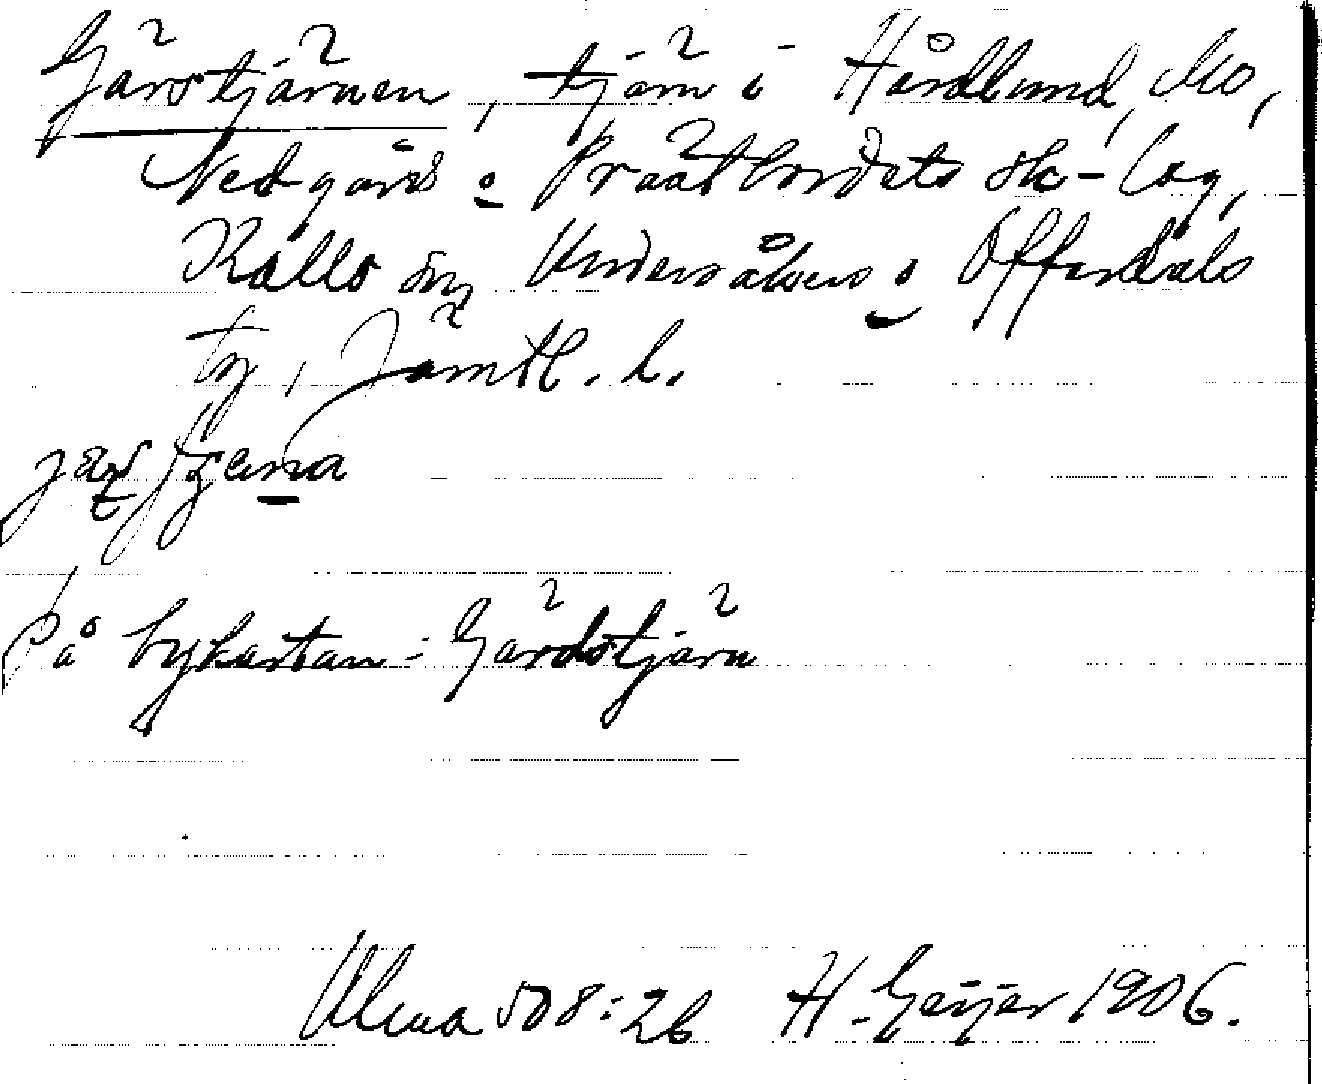 Gärstjärnen, tjärn i Hårdlund, Mo,
Nedgård o Prästbordets sk-lag,
Kalls sn, Undersåkers o Offerdals
tg, Jämtl. l.
På bykartan: Gärdstjärn
Ulma 508:26 H. Geijer 1906.